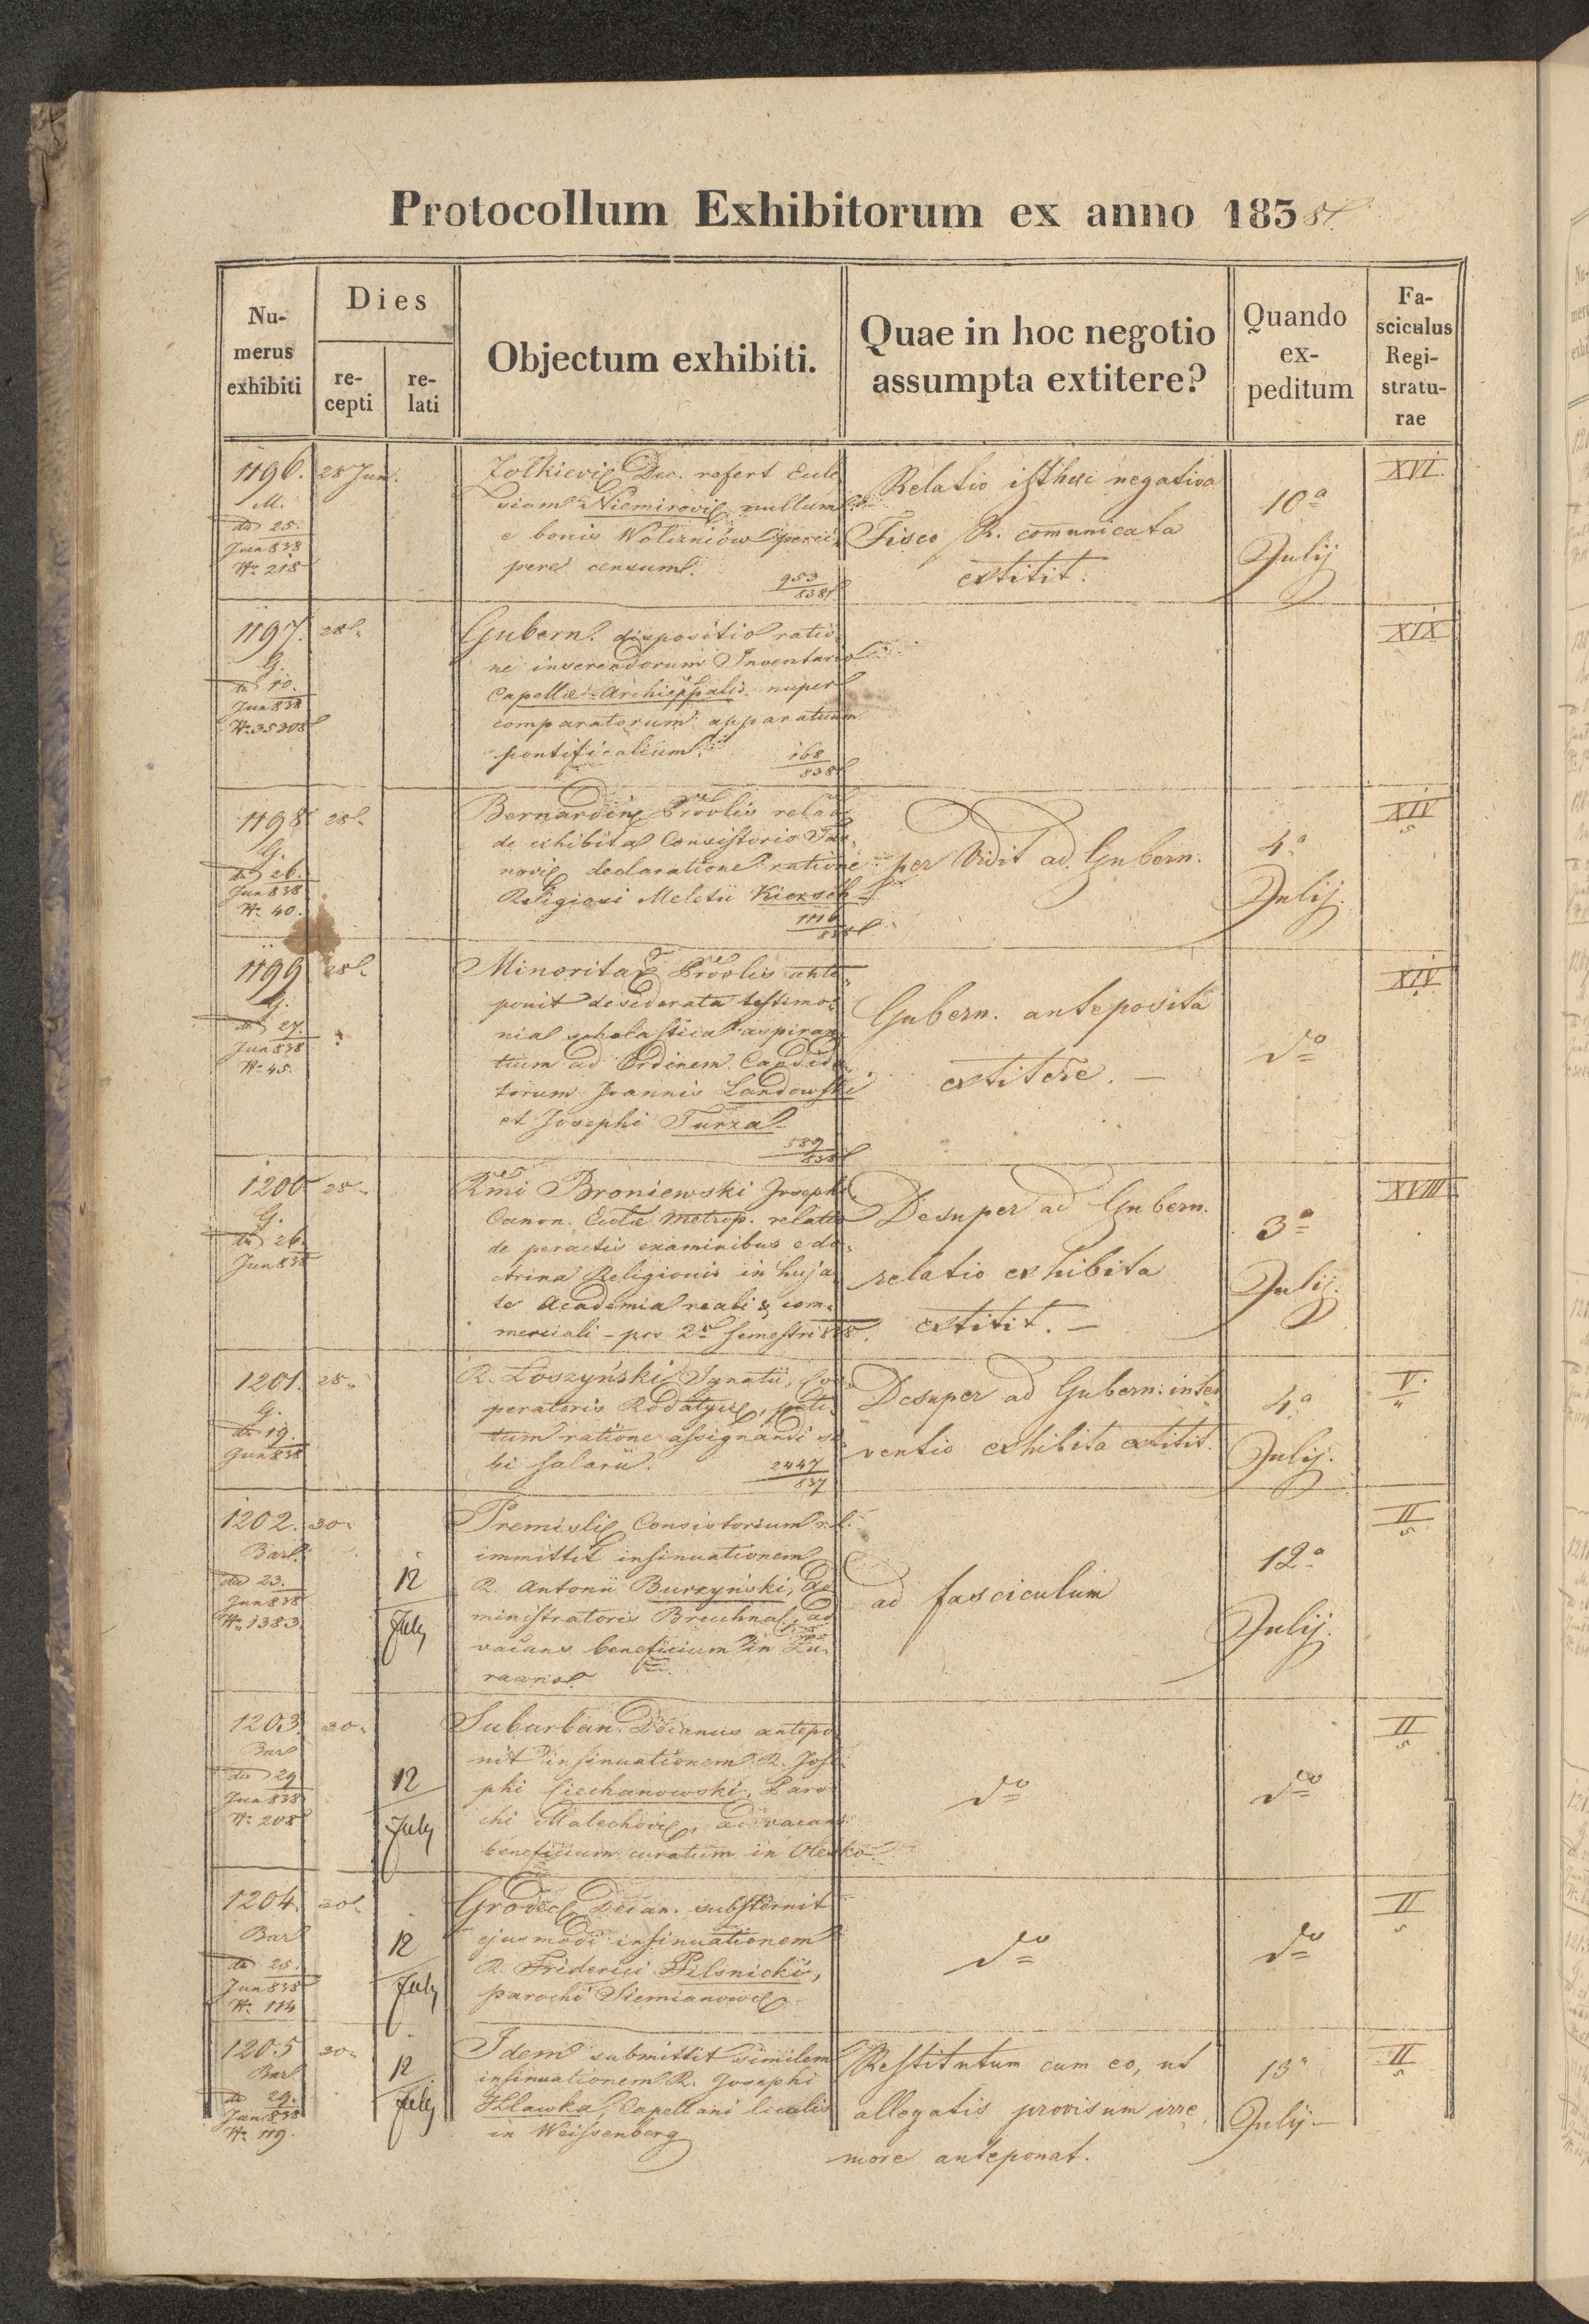 Protocollum Exhibitorum ex anno 1838
Numerus exhibiti
Dies
recepti
relati
Objectum exhibiti.
Quae in hoc negotio assumpta extitere?
Quando expeditum
Fasciculus Registraturae
1196. 28 Jun.
M.
dto 25.
Jun 838
Nr. 218
Zolkievie Dec. refert Eccle
siam Niemirovie nullum
e bonis percı
pere censum.
953
838
Relatio isthaec negativa
Fisco R. comunicata
extitit.
10a
Julij
XVI.
1197. 28
G.
dto 10.
Jun 838
Nr. 35308
Gubern. dispositio ratio
ne inserendorum Inventario
Capellae Archieppalis nuper
comparatorum apparatuum
pontificalium.
168
838
XIX
1198 28
G.
dto 26.
Jun 838
Nr. 40.
Bernardin. Provlis relat
de exhibita Consistorio Tar
novie declaratione ratione
Religiosi Meletii
1116
838
per Vidit ad Gubern.
4a
Julij.
XIV
5
1199 28
G.
dto 27.
Jun 838
Nr. 45.
Minorita Provlis ante
ponit desiderata testimo
nia scholastica aspiran
tium ad Ordinem Candida
torum Joannis Landowski
et Josephi Turza
589
838
Gubern. anteposita
extitere. —
do
XIV
1200 28
G.
dto 26.
Jun 838
Rmi Broniewski Josephi
Canon. Ecclae Metrop. relatio
de peractis examinibus e do
ctrina Religionis in huja
te Academia reali & com
merciali - pro 2o semestri 838.
Desuper ad Gubern.
relatio exhibita
extitit. —
3a
Julij.
XVIII
1201. 28
G.
dto 19.
Jun 838
R. Łoszyński Ignatii, Coo
peratoris Rodatyce, peti
tum ratione assignandi si
bi salarii.
2447
837
Desuper ad Gubern: inter
ventio exhibita extitit.
4a
Julij.
V.
1202. 30
Bar.
dto 23.
Jun 838
Nr. 1383.
12
July
Premislie Consistorium r.l.
immittit insinuationem
R. Antonii Burzyński, Ad
ministratoris Bruchnal, ad
vacans beneficium in Żu
rawno.
ad fasciculum
12a
Julij.
II
5
1203. 30
Bar
dto 29
Jun 838
Nr. 208
12
July
Suburban. Decanus antepo
nit insinuationem R. Jose
phi Ciechanowski, Paro
chi Malechovie, ad vacans
beneficium curatum in Olesko
do
do
II
5
1204. 30
Bar
dto 25.
Jun 838
Nr. 114
12
July
Grodec. Decan. substernit
ejusmodi insinuationem
R. Friderici Pilsnicki,
parochi Siemianowce
do
do
II
5
1205 30
Bar
dto 29.
Jun 838
Nr. 119.
12
July
Idem submittit similem
insinuationem R. Josephi
Hlawka, Capellani localis
in Weissenberg
Restitutum cum eo, ut
allegatis provisum irre
more anteponat.
13a
Julij —
II
5